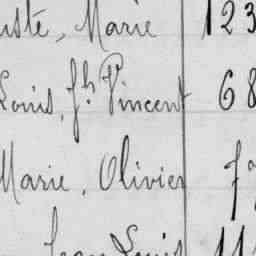 uste, Marie 123
Louis, fh. Vincent 68
Marie, Olivier
Jean Louis 11